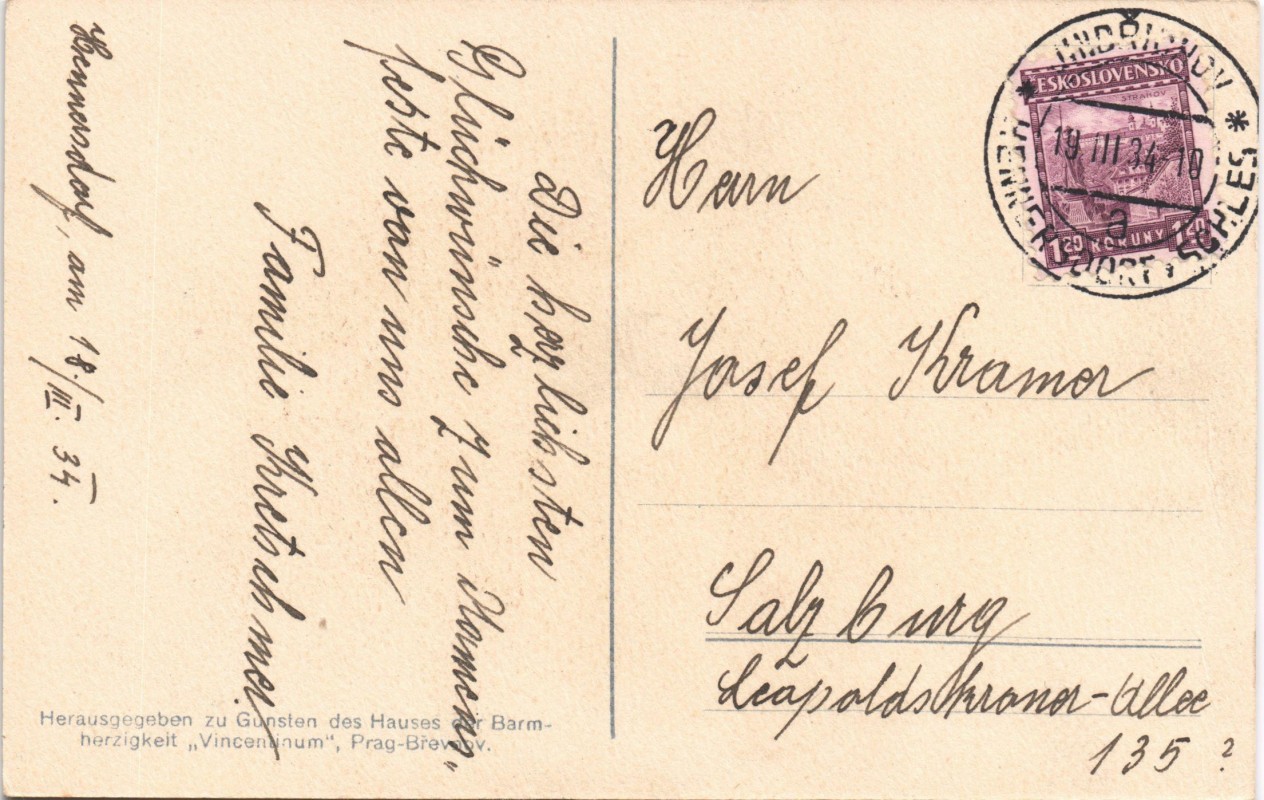 Hennersdorf, am 18./III. 34.
Die herzlichsten
Glückwünsche zum Namens-
feste von uns allen
Familie Kretschmer
Herausgegeben zu Gunsten des Hauses der Barm-
herzigkeit „Vincentinum“, Prag-Břevnov.
JINDŘICHOV
* HENNERSDORF, SCHLES *
19 III 34-18
a
ČESKOSLOVENSKO
STRAHOV
1.20 KORUNY 1.20
Herrn
Josef Kramer
Salzburg
Leopoldskroner-Allee
135 ?